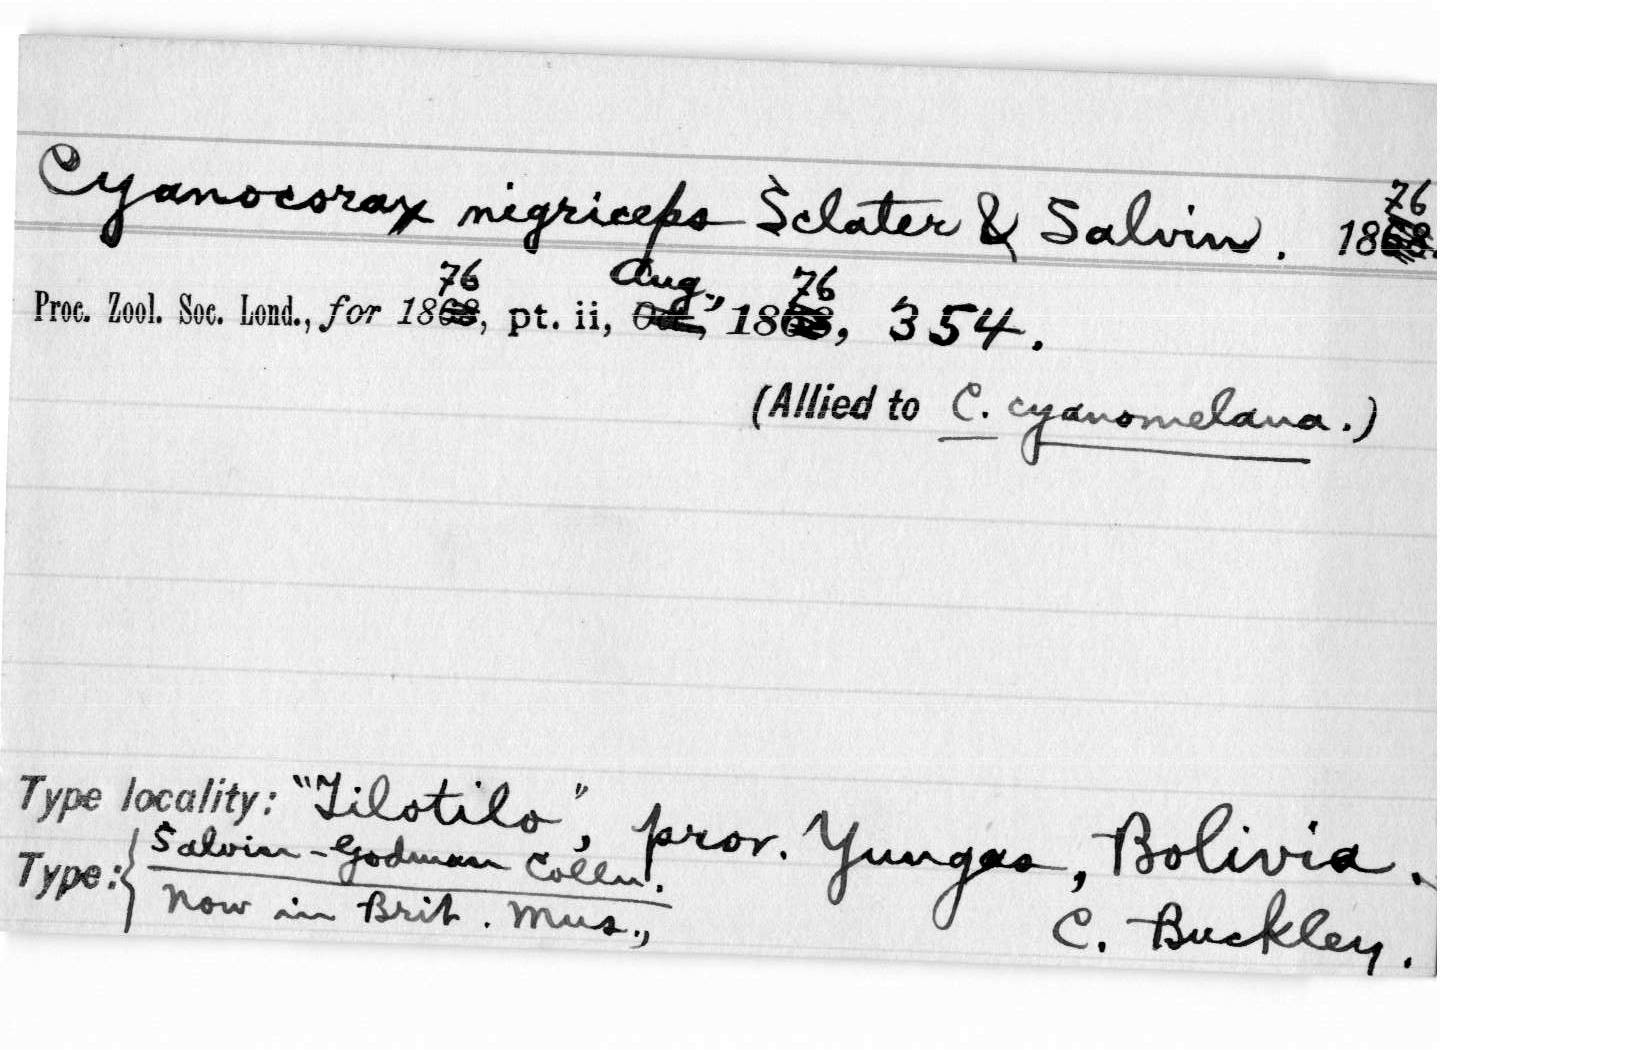 Cyanocorax nigriceps Sclater & Salvin. 1876
Proc. Zool. Soc. Lond., for 1876, pt. ii, Aug., 1876, 354.
(Allied to C. cyanomelana.)
Type locality: "Tilotilo", prov. Yungas, Bolivia.
Type: { Salvin-Godman Colln.
Now in Brit. Mus., C. Buckley.